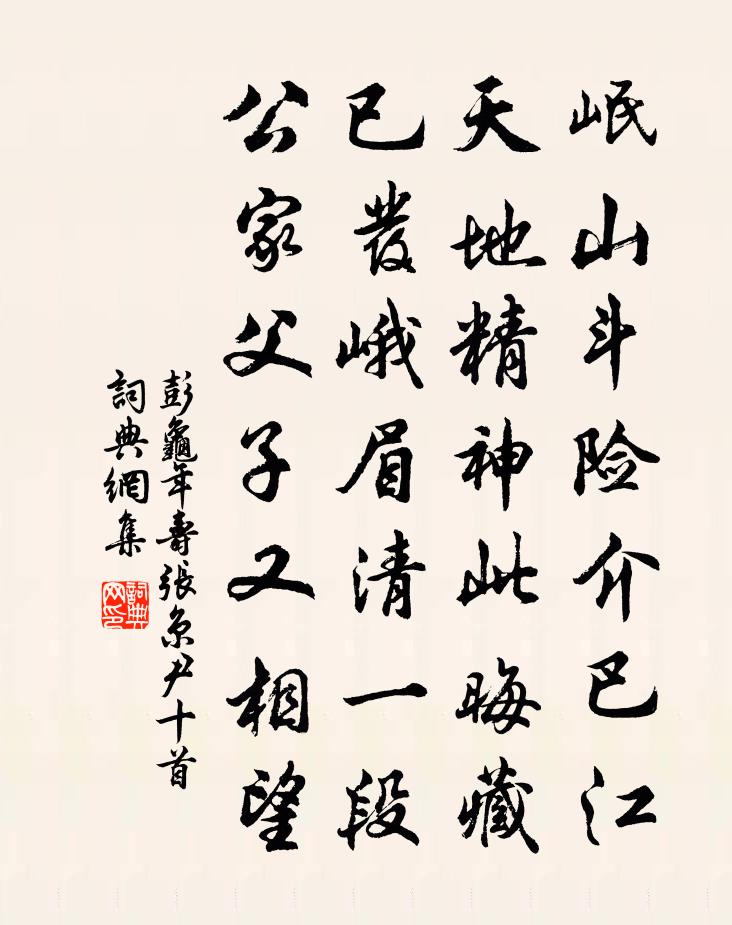 岷山斗险介巴江
天地精神此晦藏
已發峨眉清一段
公家父子又相望
彭龜年壽張京尹十首
詞典網集
詞典网印